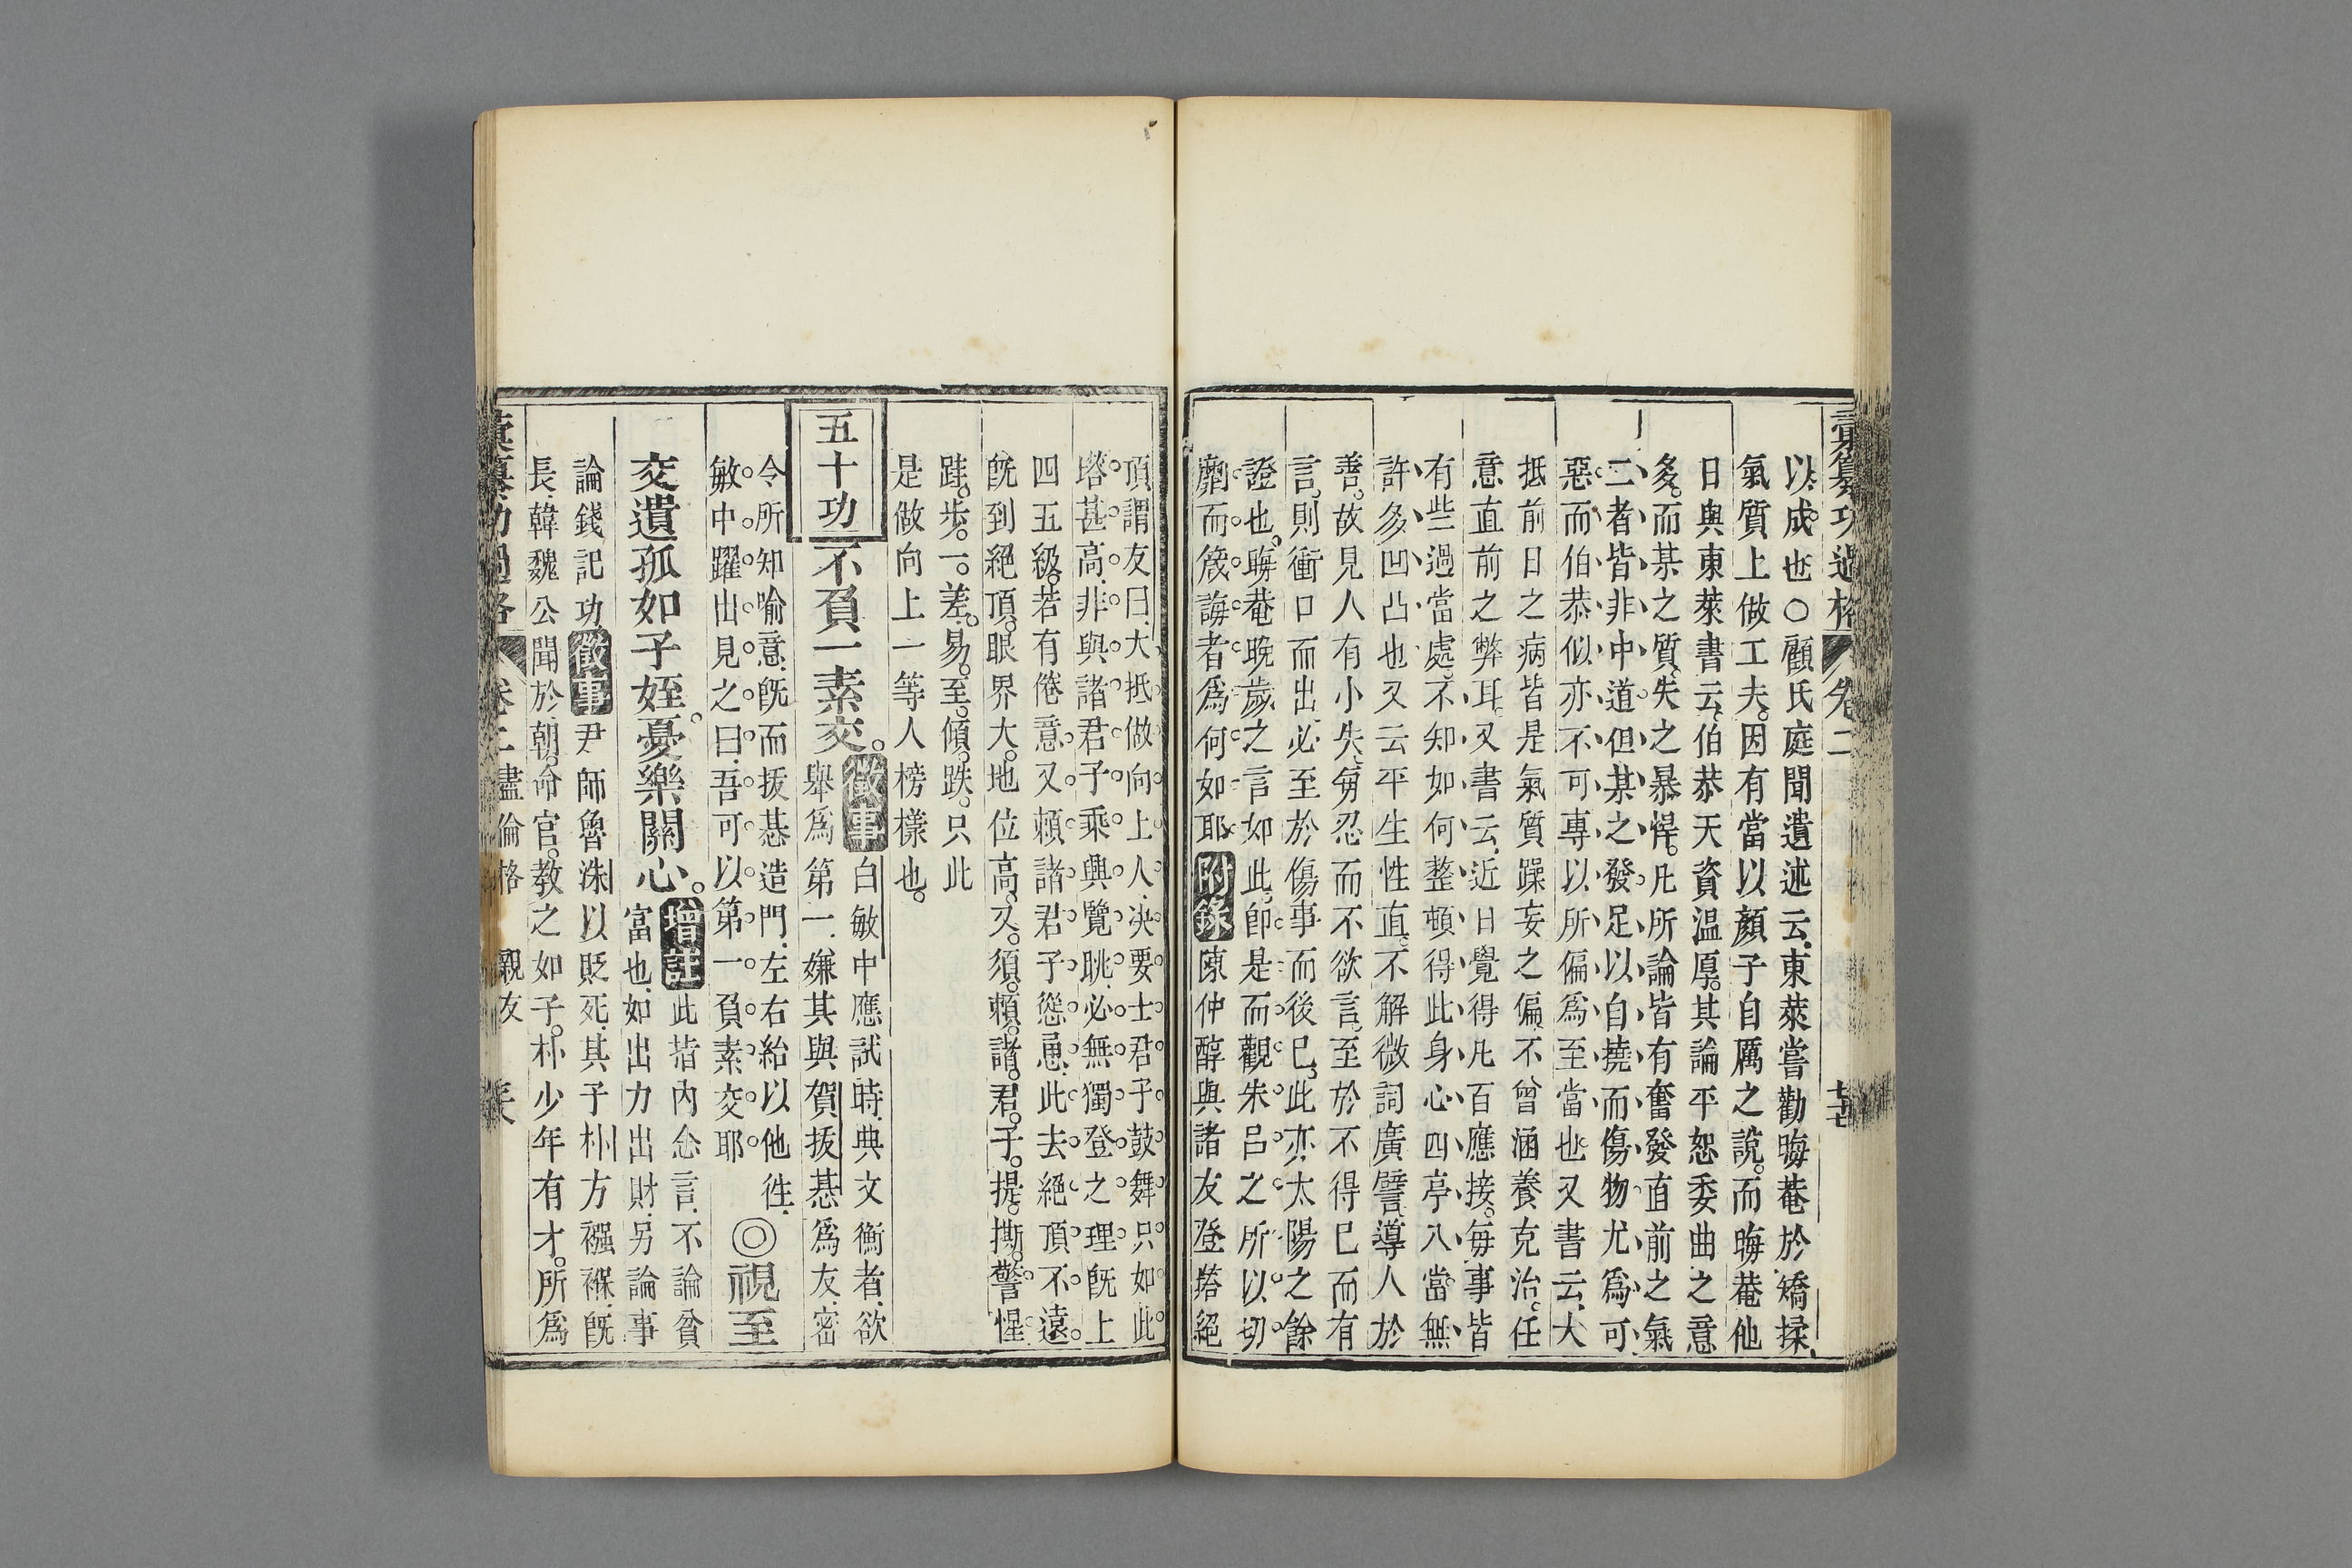 彙纂功過格 卷二
以成也○顧氏庭聞遺述云東萊嘗勸晦菴於矯揉
氣質上做工夫因有當以顏子自厲之說而晦菴他
日與東萊書云伯恭天資溫厚其論平恕委曲之意
多而某之質失之暴悍凡所論皆有奮發直前之氣
二者皆非中道但某之發足以自撓而傷物尤爲可
惡而伯恭似亦不可專以所偏爲至當也又書云大
抵前日之病皆是氣質躁妄之偏不曾涵養克治任
意直前之弊耳又書云近日覺得凡百應接每事皆
有些過當處不知如何整頓得此身心四亭八當無
許多凹凸也又云平生性直不解微詞廣譬導人於
善故見人有小失每忍而不欲言至於不得已而有
言則衝口而出必至於傷事而後已此亦太陽之餘
證也晦菴晚歲之言如此卽是而觀朱呂之所以切
劘而箴誨者爲何如耶附錄陳仲醇與諸友登塔絕
頂謂友曰大抵做向上人決要士君子鼓舞只如此
塔甚高非與諸君子乘興覽眺必無獨登之理旣上
四五級若有倦意又賴諸君子慫恿此去絕頂不遠
旣到絕頂眼界大地位高又須賴諸君子提撕警惺
跬步一差易至傾跌只此
是做向上一等人榜樣也
五十功 不負一素交 徵事 白敏中應試時典文衡者欲
舉爲第一嫌其與賀拔惎爲友密
令所知喻意旣而拔惎造門左右紿以他往
敏中躍出見之曰吾可以第一負素交耶 ◎視至
交遺孤如子姪憂樂關心 增註 此皆內念言不論貧
富也如出力出財另論事
論錢記功 徵事 尹師魯洙以貶死其子朴方襁褓旣
長韓魏公聞於朝命官教之如子朴少年有才所爲
彙纂功過格 卷二 盡倫格 親友